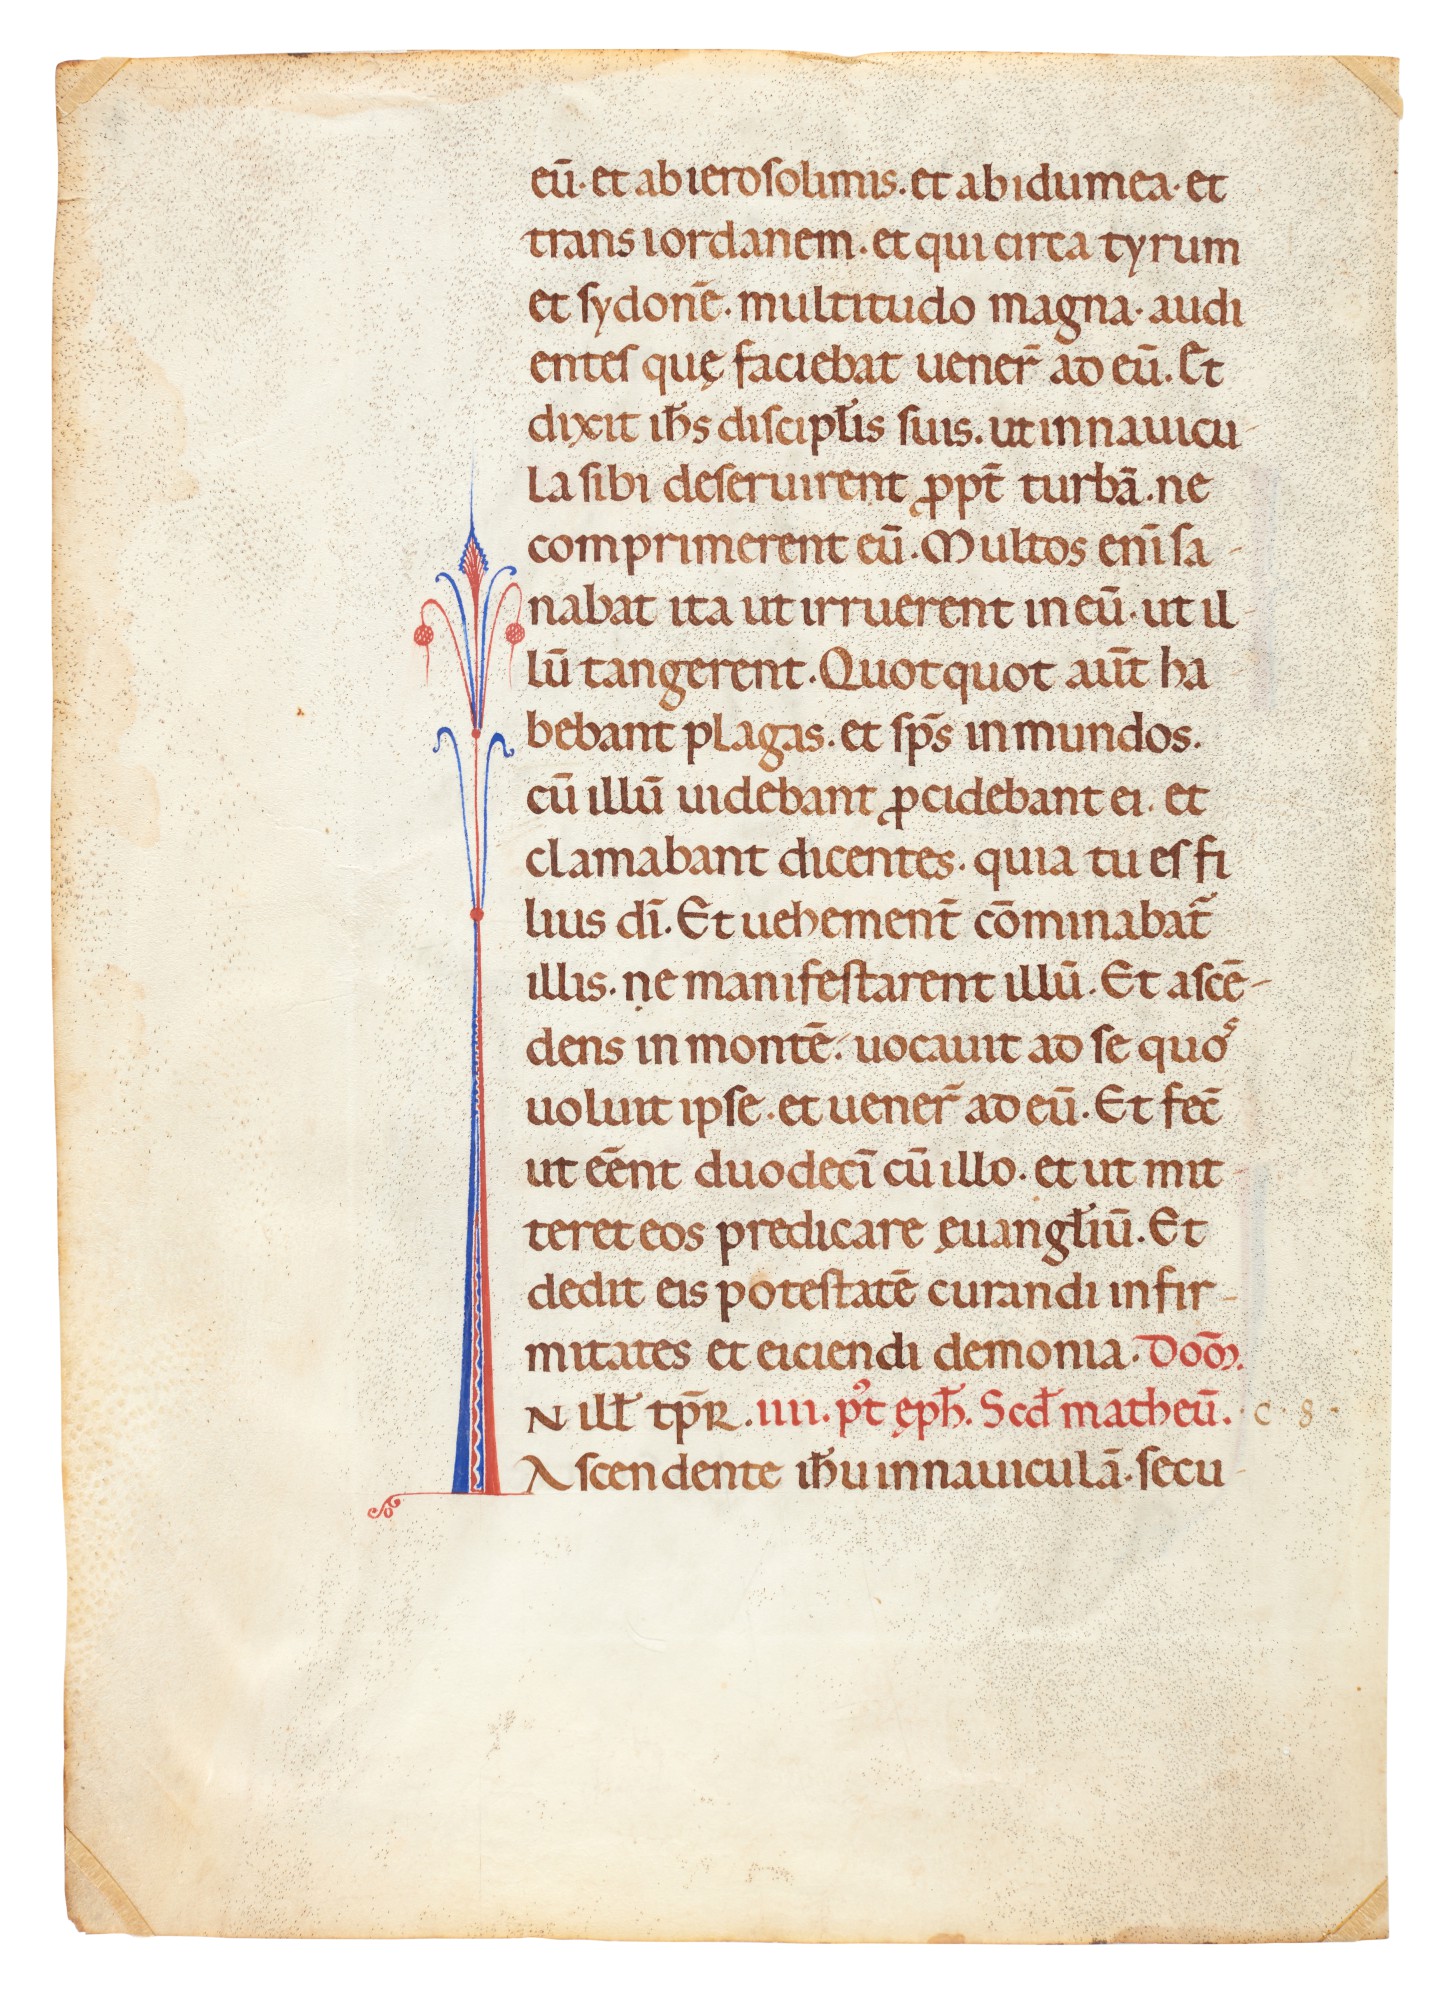 eū· et ab ierosolimis. et ab idumea· et
trans iordanem. et qui circa tyrum
et sydonē. multitudo magna· audi
entes quę faciebat uener̄ ad eū. Et
dixit ih̄s discipłis suis. ut in nauicu-
la sibi deseruirent ꝓpt̄ turbā. ne
comprimerent eū. Multos eni̅ sa-
nabat ita ut irruerent in eū· ut il-
lū tangerent. Quotquot aūt ha
bebant plagas. et sp̄s inmundos.
cū illū uidebant ꝓcidebant ei. et
clamabant dicentes. quia tu es fi
lius dī. Et uehement̄ cōminabat᷑
illis. ne manifestarent illū. Et ascē-
dens in montē. uocauit ad se quoˢ
uoluit ipse. et uener̄ ad eū. Et fec̄
ut eēnt duodecī cū illo. et ut mit
teret eos predicare ęuangłiū. Et
dedit eis potestatē curandi infir-
mitates et eiciendi demonia. Dōm̄.
N ill̄ tp̄R. IIII. p᾿t ęph̄. Scd̄ matheū. · c · 8 ·
Ascendente ih̄u in nauiculā. secu-